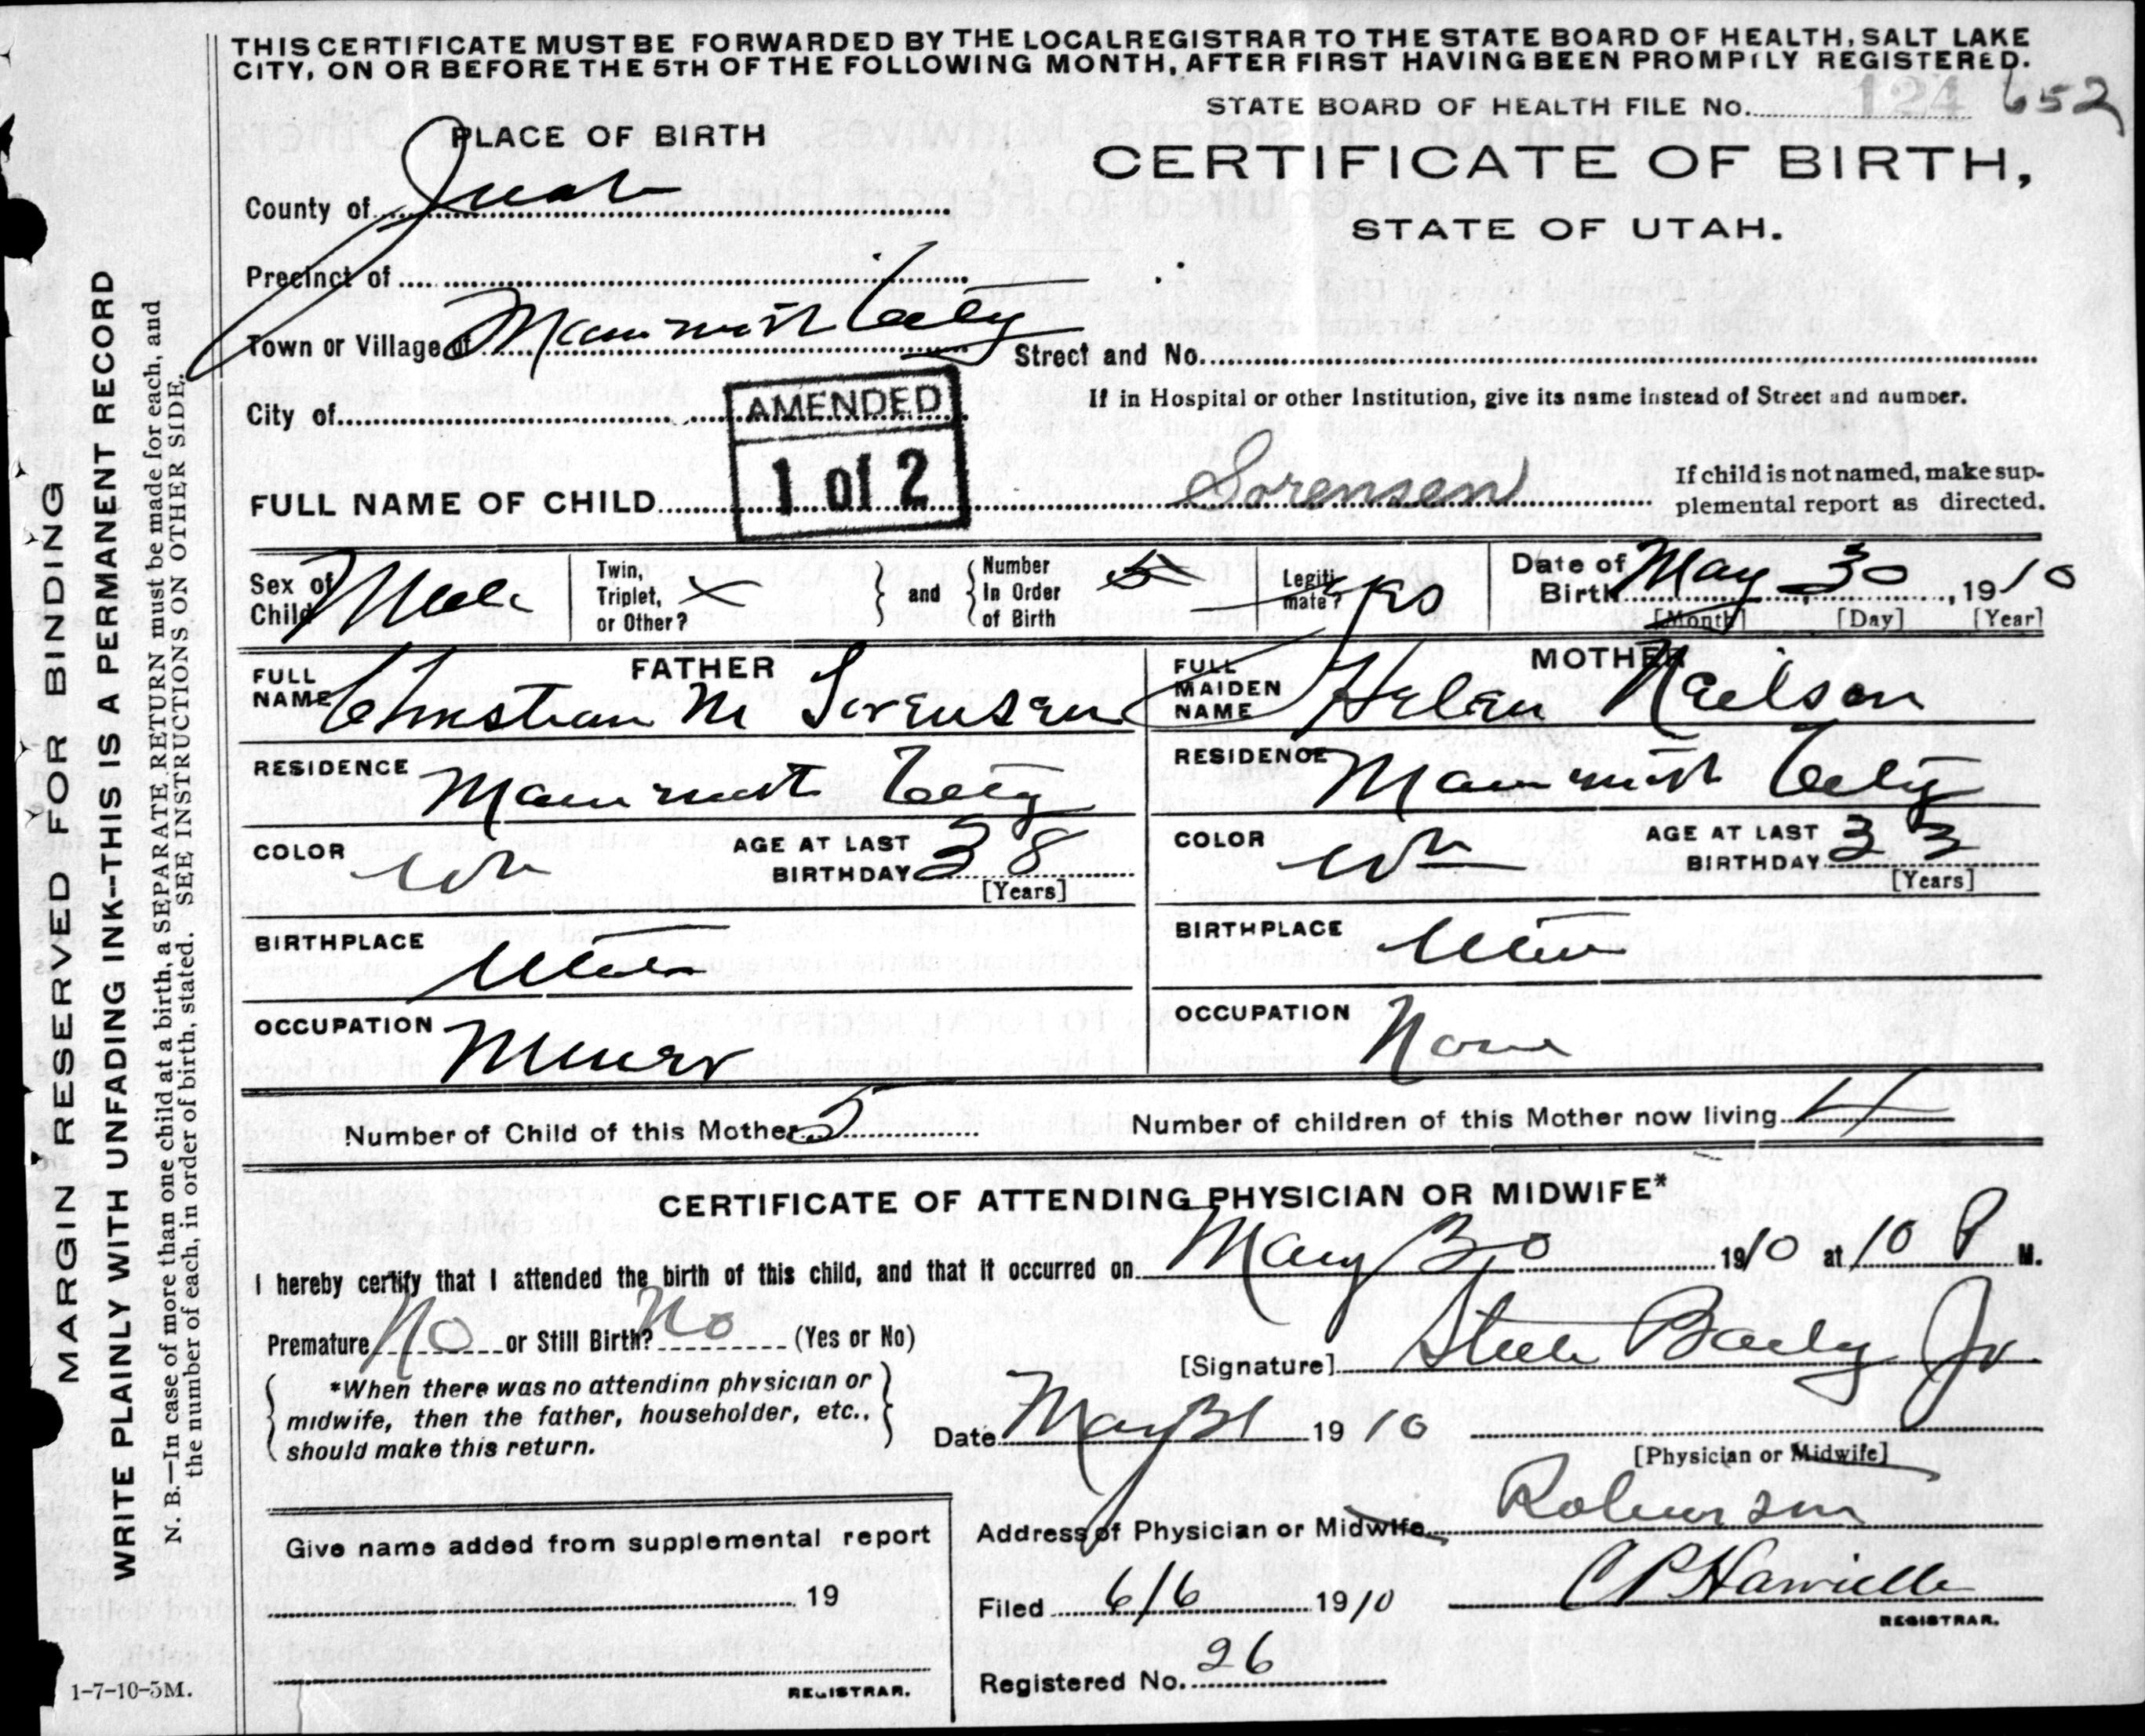 THIS CERTIFICATE MUST BE FORWARDED BY THE LOCAL REGISTRAR TO THE STATE BOARD OF HEALTH, SALT LAKE
CITY, ON OR BEFORE THE 5TH OF THE FOLLOWING MONTH, AFTER FIRST HAVING BEEN PROMPTLY REGISTERED.
STATE BOARD OF HEALTH FILE No. 124 652
PLACE OF BIRTH
CERTIFICATE OF BIRTH,
STATE OF UTAH.
County of Juab
Precinct of
Town or Village of Mammoth City
Street and No.
City of
If in Hospital or other Institution, give its name instead of Street and number.
AMENDED
1 of 2
FULL NAME OF CHILD Sorensen
If child is not named, make sup-
plemental report as directed.
Sex of Child Male
Twin, Triplet, or Other? X
and
Number In Order of Birth 5
Legiti mate? yes
Date of Birth May 30, 1910
[Month] [Day] [Year]
FATHER
FULL NAME Christian M Sorensen
MOTHER
FULL MAIDEN NAME Helen Neilson
RESIDENCE Mammoth City
RESIDENCE Mammoth City
COLOR Wh
AGE AT LAST BIRTHDAY 38
[Years]
COLOR Wh
AGE AT LAST BIRTHDAY 33
[Years]
BIRTHPLACE Utah
BIRTHPLACE Utah
OCCUPATION Miner
OCCUPATION None
Number of Child of this Mother 5
Number of children of this Mother now living 4
CERTIFICATE OF ATTENDING PHYSICIAN OR MIDWIFE*
I hereby certify that I attended the birth of this child, and that it occurred on May 30 1910 at 10 P M.
Premature No or Still Birth? No (Yes or No)
[Signature] Steele Baily Jr
*When there was no attending physician or
midwife, then the father, householder, etc.,
should make this return.
Date May 31 1910
[Physician or Midwife]
Address of Physician or Midwife Robinson
Give name added from supplemental report
19
REGISTRAR.
Filed 6/6 1910
REGISTRAR.
Registered No. 26
1-7-10-5M.
MARGIN RESERVED FOR BINDING
WRITE PLAINLY WITH UNFADING INK--THIS IS A PERMANENT RECORD
N. B.—In case of more than one child at a birth, a SEPARATE RETURN must be made for each, and
the number of each, in order of birth, stated. SEE INSTRUCTIONS ON OTHER SIDE.